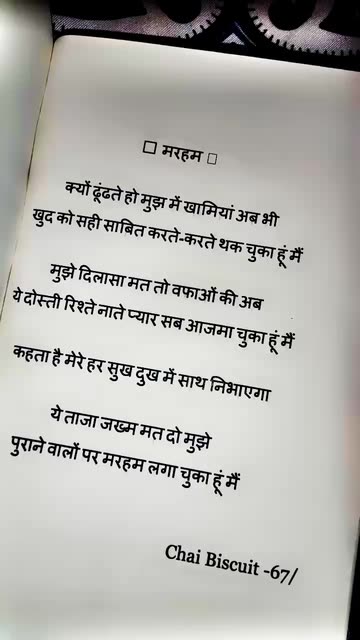 □ मरहम □
क्यों ढूंढते हो मुझ में खामियां अब भी
खुद को सही साबित करते-करते थक चुका हूं मैं
मुझे दिलासा मत तो वफाओं की अब
ये दोस्ती रिश्ते नाते प्यार सब आजमा चुका हूं मैं
कहता है मेरे हर सुख दुख में साथ निभाएगा
ये ताजा जख्म मत दो मुझे
पुराने वालों पर मरहम लगा चुका हूं मैं
Chai Biscuit -67/